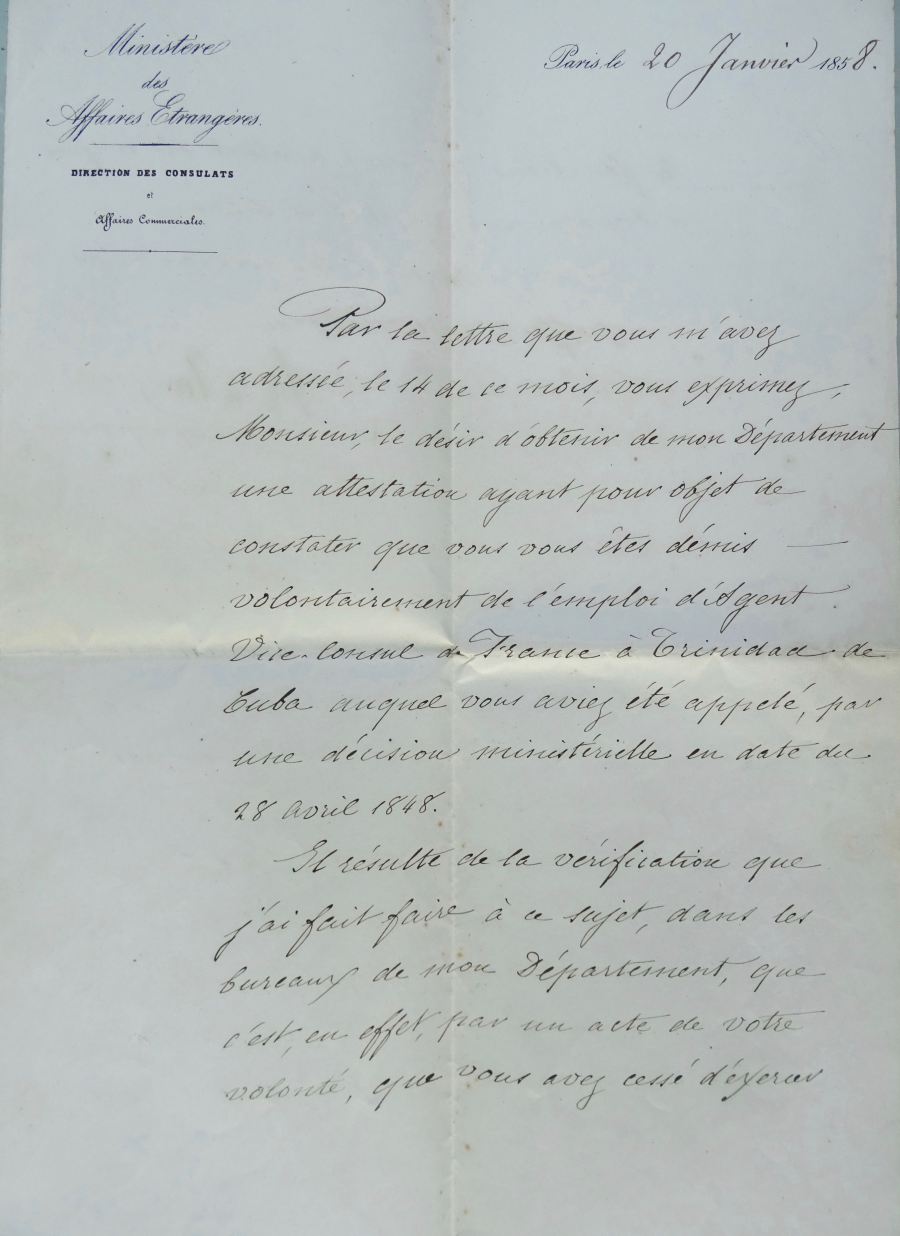 Ministère
des
Affaires Etrangères.
DIRECTION DES CONSULATS
et
Affaires Commerciales.
Paris, le 20 Janvier 1858.
Par la lettre que vous m'avez
adressée, le 14 de ce mois, vous exprimez,
Monsieur, le désir d'obtenir de mon Département
une attestation ayant pour objet de
constater que vous vous êtes démis —
volontairement de l'emploi d'Agent
Vice-Consul de France à Trinidad de
Cuba auquel vous aviez été appelé, par
une décision ministérielle en date du
28 avril 1848.
Il résulte de la vérification que
j'ai fait faire à ce sujet, dans les
bureaux de mon Département, que
c'est, en effet, par un acte de votre
volonté, que vous avez cessé d'éxercer